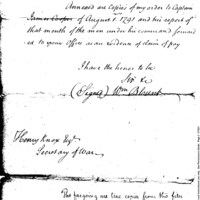 Annexed are Copies of my order to Captain
James Cooper of August 1st 1791 and his report of
that month of the men under his command forward
as to your Office as an evidence of claim of pay
I have the honor to be
Sir &c
(Signed) Wm Blount
Henry Knox Esqr
Secretary of War
The foregoing are true copies from the files